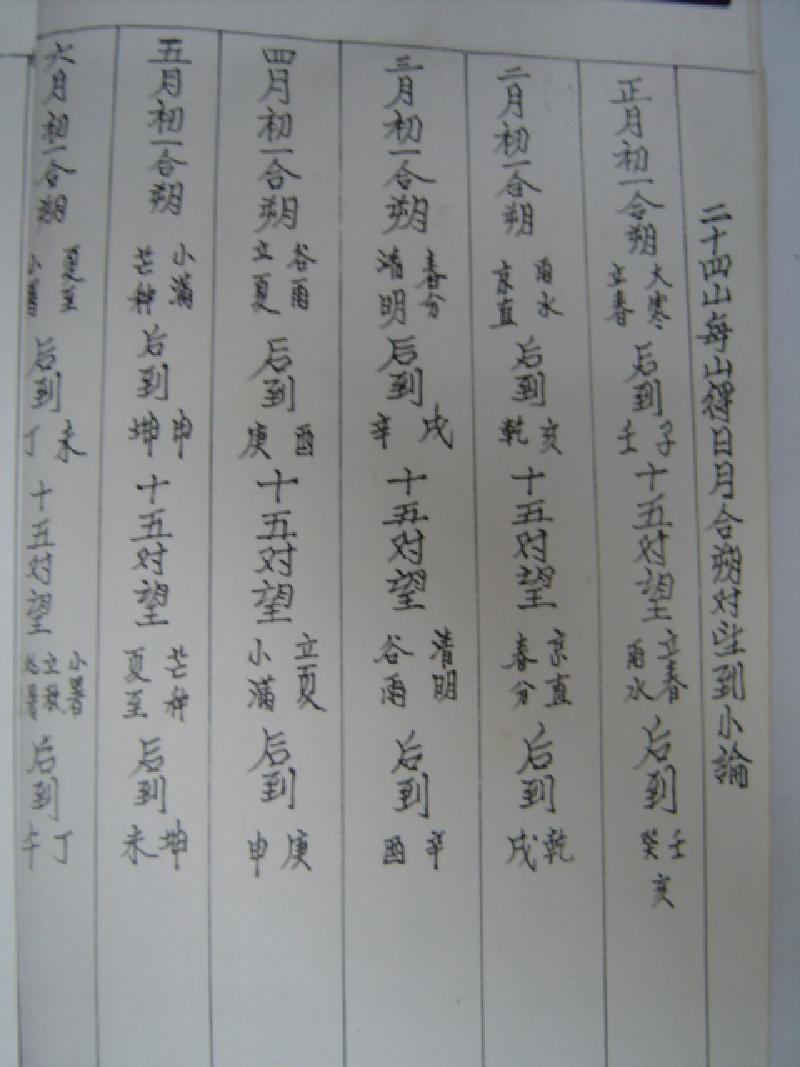 二十四山每山得日月合朔对望到小論
正月初一合朔大寒立春后到子壬十五对望立春雨水后到壬癸亥
二月初一合朔雨水京直后到亥乾十五对望京直春分后到乾戌
三月初一合朔春分清明后到戌辛十五对望清明谷雨后到辛酉
四月初一合朔谷雨立夏后到酉庚十五对望立夏小滿后到庚申
五月初一合朔小滿芒种后到申坤十五对望芒种夏至后到坤未
六月初一合朔夏至小暑后到未丁十五对望小暑立秋后到丁午